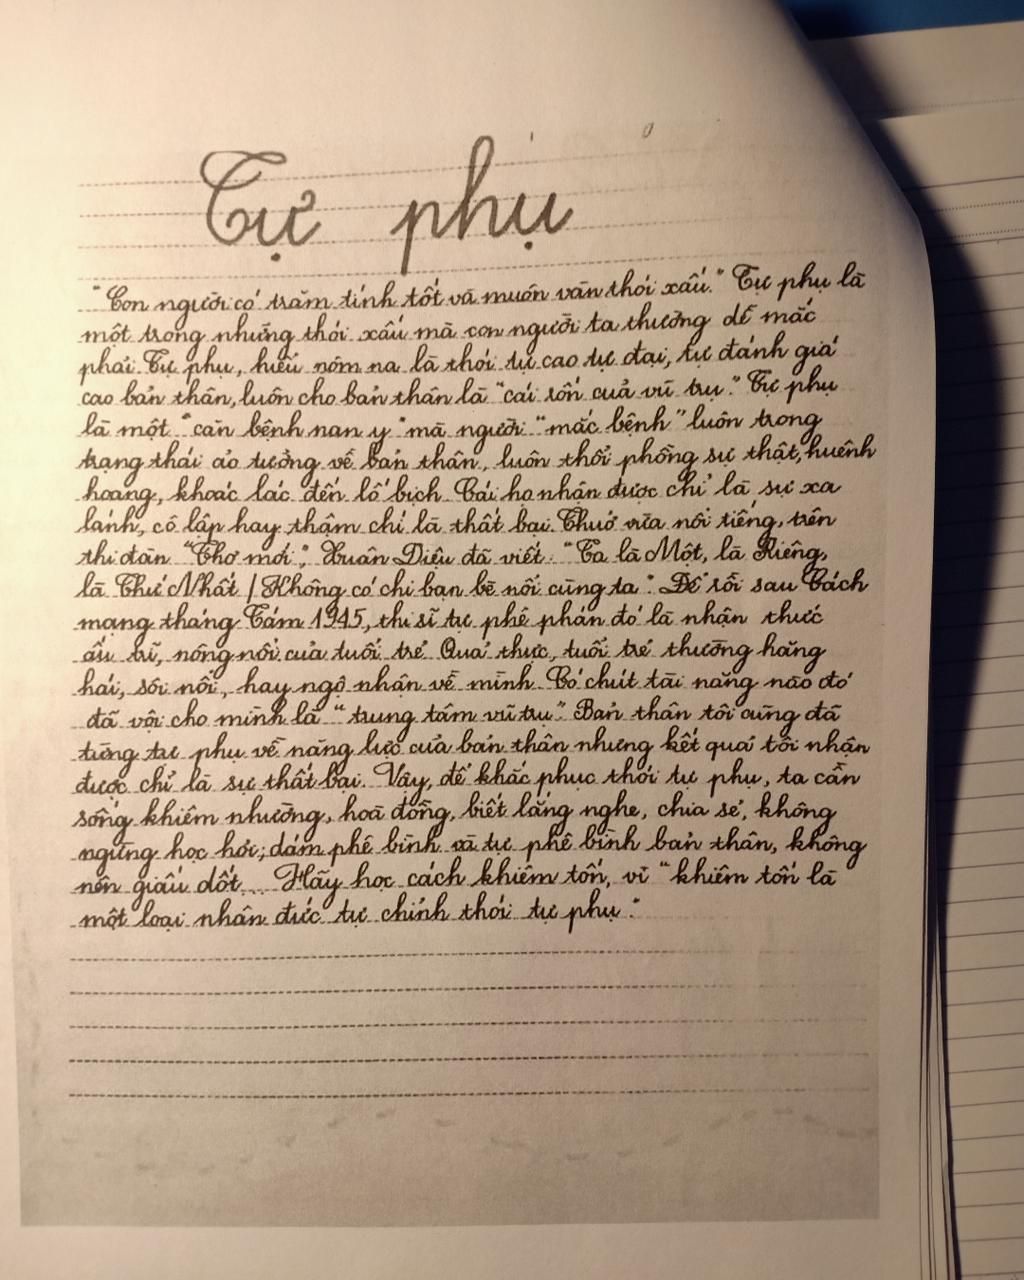 Tự phụ
"Con người có trăm tính tốt và muôn vàn thói xấu." Tự phụ là
một trong những thói xấu mà con người ta thường dễ mắc
phải. Tự phụ, hiểu nôm na là thói tự cao tự đại, tự đánh giá
cao bản thân, luôn cho bản thân là "cái rốn của vũ trụ." Tự phụ
là một "căn bệnh nan y" mà người "mắc bệnh" luôn trong
trạng thái ảo tưởng về bản thân, luôn thổi phồng sự thật, huênh
hoang, khoác lác đến lố bịch. Cái họ nhận được chỉ là sự xa
lánh, cô lập hay thậm chí là thất bại. Thuở vừa nổi tiếng, trên
thi đàn "Thơ mới", Xuân Diệu đã viết: "Ta là Một, là Riêng,
là Thứ Nhất / Không có chi bạn bè nổi cùng ta". Để rồi sau Cách
mạng tháng Tám 1945, thi sĩ tự phê phán đó là nhận thức
ấu trĩ, nông nổi của tuổi trẻ. Quả thực, tuổi trẻ thường hăng
hái, sôi nổi, hay ngộ nhận về mình. Có chút tài năng nào đó
đã vội cho mình là "trung tâm vũ trụ". Bản thân tôi cũng đã
từng tự phụ về năng lực của bản thân nhưng kết quả tôi nhận
được chỉ là sự thất bại. Vậy, để khắc phục thói tự phụ, ta cần
sống khiêm nhường, hoà đồng, biết lắng nghe, chia sẻ, không
ngừng học hỏi; dám phê bình và tự phê bình bản thân, không
nên giấu dốt... Hãy học cách khiêm tốn, vì "khiêm tốn là
một loại nhân đức tự chỉnh thói tự phụ".